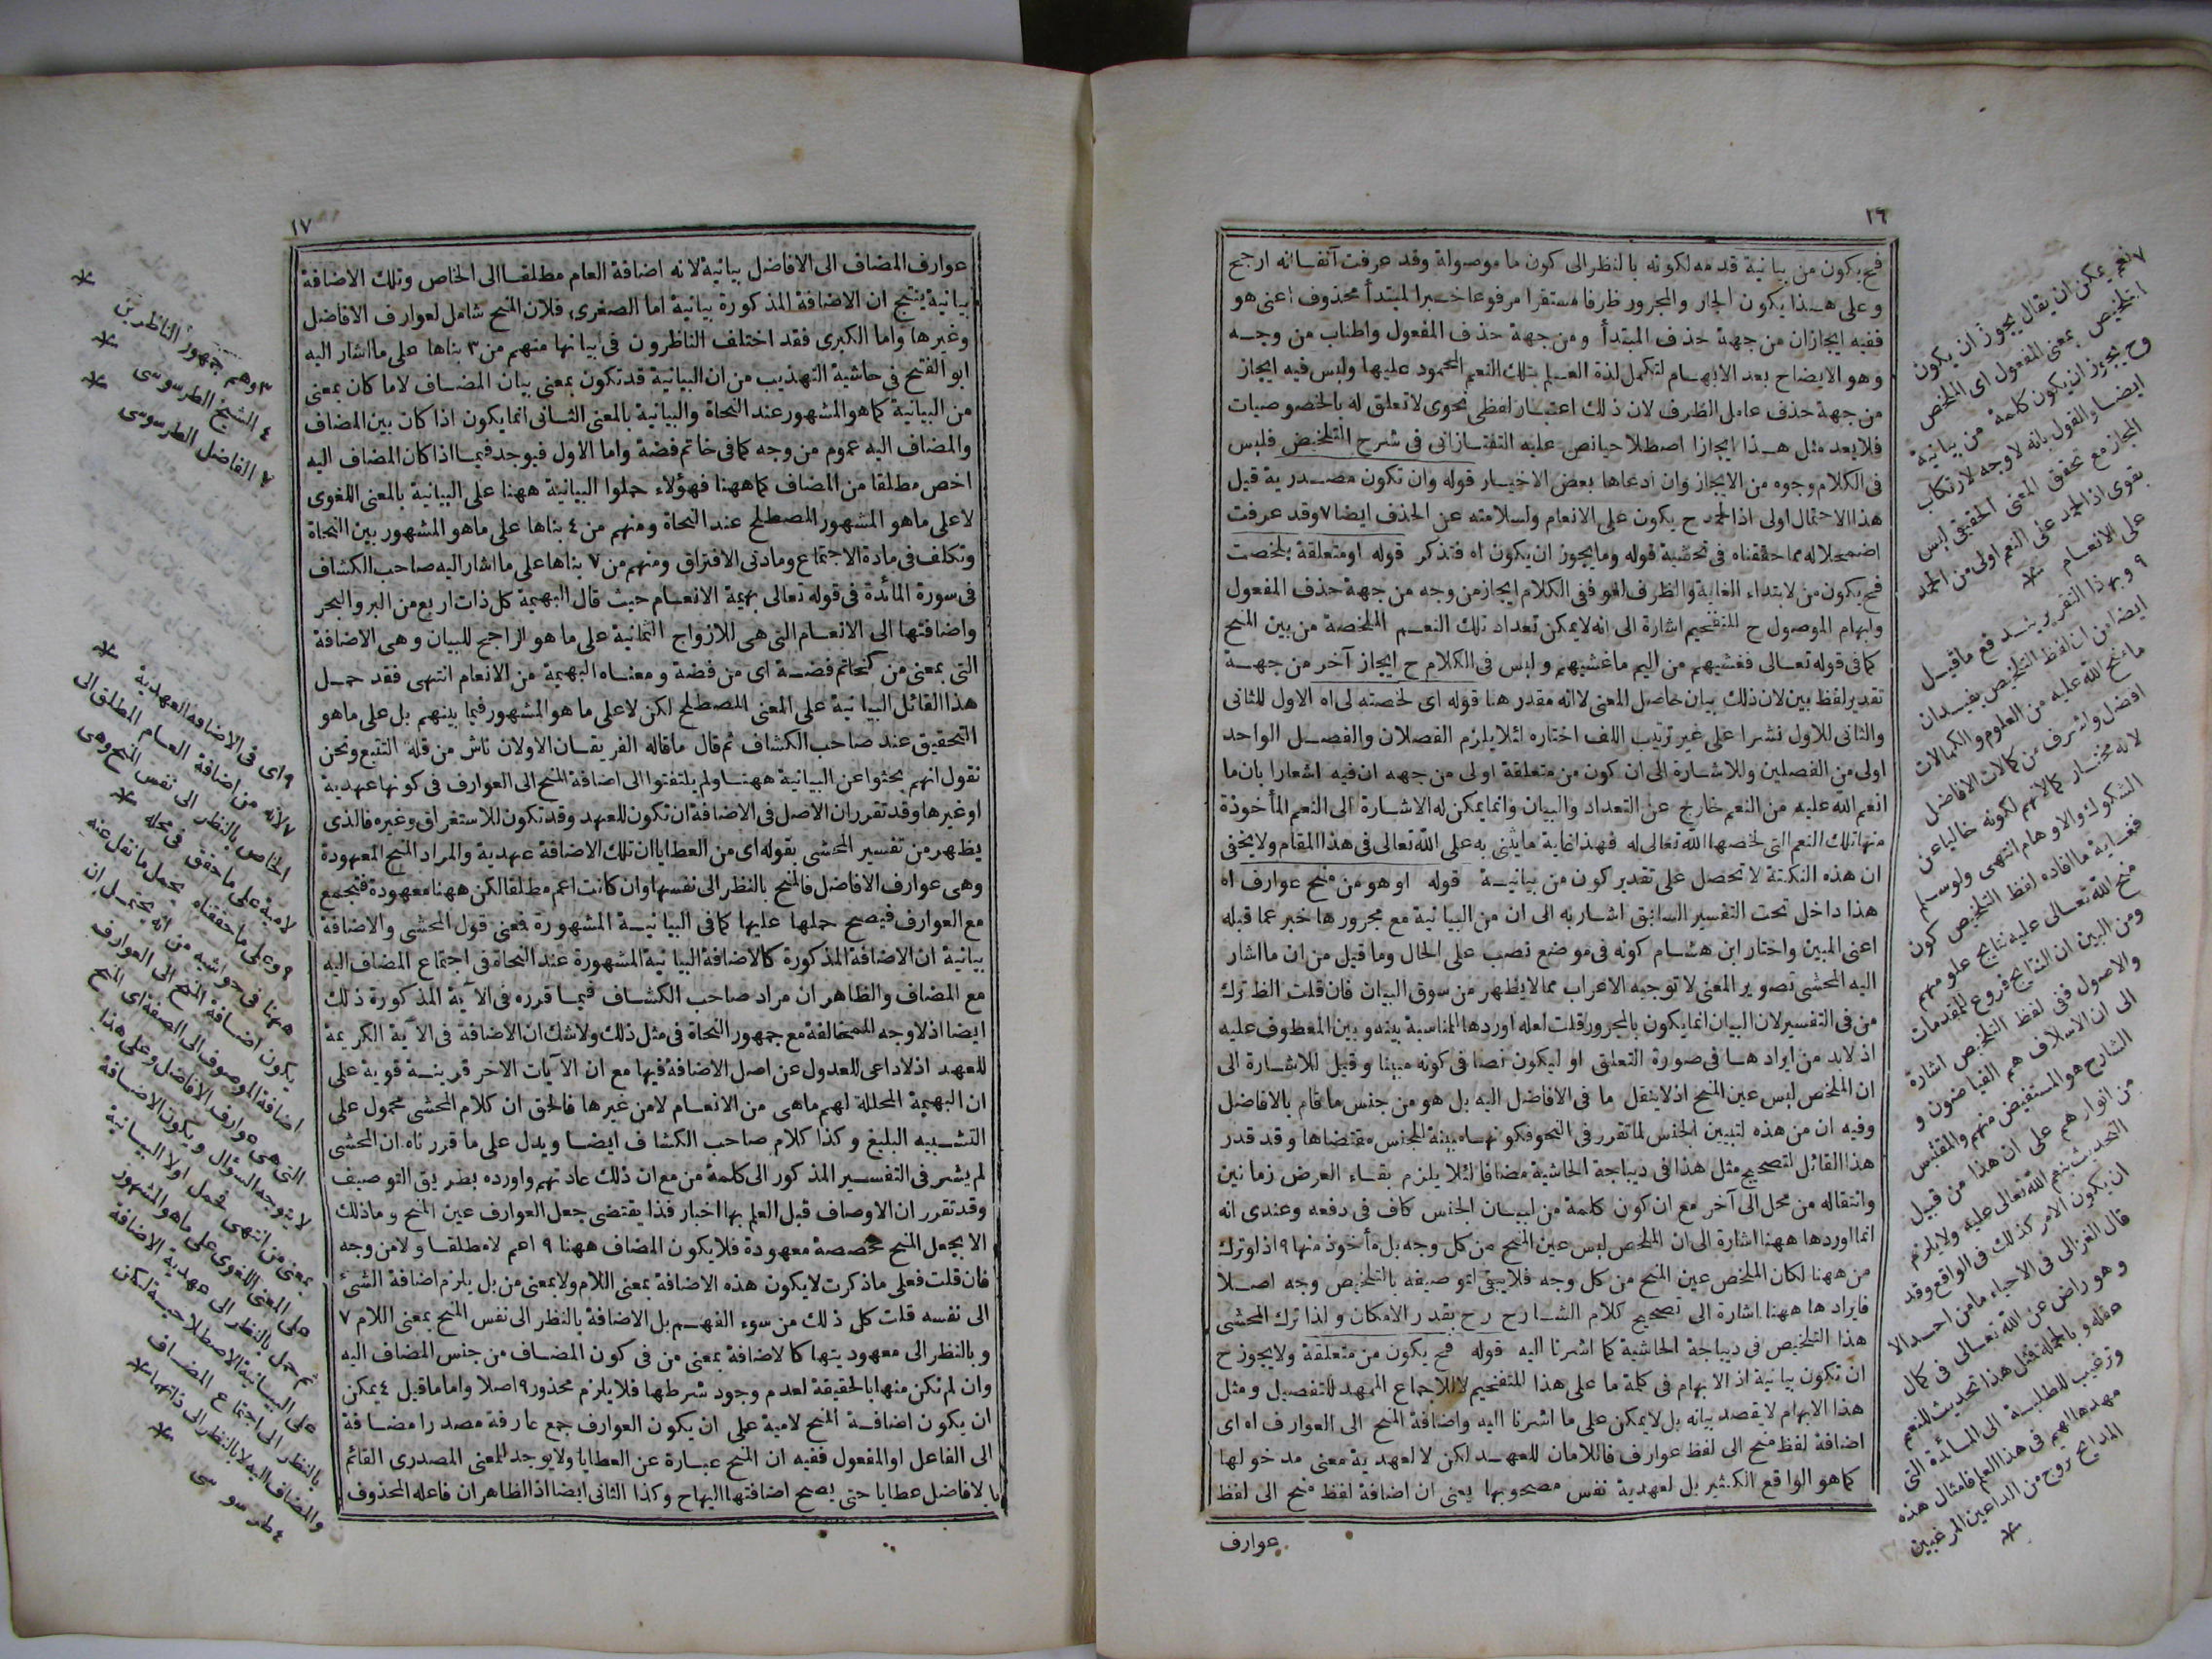 ١٦
فح يكون من بيانية قدمه لكونه بالنظر الى كون ما موصولة وقد عرفت آنفا انه ارجح
وعلى هذا يكون الجار والمجرور ظرفا مستقرا مرفوعا خبرا لمبتدأ محذوف اعنى هو
ففيه ايجازان من جهة حذف المبتدأ ومن جهة حذف المفعول واطناب من وجه
وهو الايضاح بعد الابهام لتكمل لذة العلم بتلك النعم المحمود عليها وليس فيه ايجاز
من جهة حذف عامل الظرف لان ذلك اعتبار لفظى نحوى لا تعلق له بالخصوصيات
فلا يعد مثل هذا ايجازا اصطلاحيا نص عليه التفتازانى فى شرح التلخيص فليس
فى الكلام وجوه من الايجاز وان ادعاها بعض الاخيار قوله وان تكون مصدرية قيل
هذا الاحتمال اولى اذ الحمد ح يكون على الانعام ولسلامته عن الحذف ايضا ٧ وقد عرفت
اضمحلاله مما حققناه فى تحشية قوله وما يجوز ان يكون اه فتذكر قوله او متعلقة بلخصت
فح يكون من لابتداء الغاية والظرف لغو ففى الكلام ايجاز من وجه من جهة حذف المفعول
وابهام الموصول ح للتفخيم اشارة الى انه لا يمكن تعداد تلك النعم الملخصة من بين المنح
كما فى قوله تعالى فغشيهم من اليم ما غشيهم وليس فى الكلام ح ايجاز آخر من جهة
تقدير لفظ بين لان ذلك بيان حاصل المعنى لا انه مقدر هنا قوله اى لخصته لى اه الاول للثانى
والثانى للاول نشرا على غير ترتيب اللف اختاره لئلا يلزم الفصلان والفصل الواحد
اولى من الفصلين وللاشارة الى ان كون من متعلقة اولى من جهة ان فيه اشعارا بان ما
انعم الله عليه من النعم خارج عن التعداد والبيان وانما يمكن له الاشارة الى النعم المأخوذة
منها تلك النعم التى لخصها الله تعالى له فهذا نهاية ما يثنى به على الله تعالى فى هذا المقام ولا يخفى
ان هذه النكتة لا تحصل على تقدير كون من بيانية قوله او هو من منح عوارف اه
هذا داخل تحت التفسير السابق اشار به الى ان من البيانية مع مجرورها خبر عما قبله
اعنى المبين واختار ابن هشام كونه فى موضع نصب على الحال وما قيل من ان ما اشار
اليه المحشى تصوير المعنى لا توجيه الاعراب مما لا يظهر من سوق البيان فان قلت الظ ترك
من فى التفسير لان البيان انما يكون بالمجرور قلت لعله اوردها المناسبة بينه وبين المعطوف عليه
اذ لا بد من ايرادها فى صورة التعلق او ليكون نصا فى كونه مبينا وقيل للاشارة الى
ان الملخص ليس عين المنح اذ لا ينقل ما فى الافاضل اليه بل هو من جنس ما قام بالافاضل
وفيه ان من هذه لتبيين الجنس لما تقرر فى النحو فكونها مبينة للجنس مقتضاها وقد قدر
هذا القائل لتصحيح مثل هذا فى ديباجة الحاشية مضافا لئلا يلزم بقاء العرض زمانين
وانتقاله من محل الى آخر مع ان كون كلمة من لبيان الجنس كاف فى دفعه وعندى انه
انما اوردها ههنا اشارة الى ان الملخص ليس عين المنح من كل وجه بل مأخوذ منها ٩ اذ لو ترك
من ههنا لكان الملخص عين المنح من كل وجه فلا يبقى لتوصيفه بالتلخيص وجه اصلا
فايرادها ههنا اشارة الى تصحيح كلام الشارح رح بقدر الامكان ولذا ترك المحشى
هذا التلخيص فى ديباجة الحاشية كما اشرنا اليه قوله فح يكون من متعلقة ولا يجوز ح
ان تكون بيانية اذ الابهام فى كلمة ما على هذا للتفخيم لا للاجماع الممهد للتفصيل ومثل
هذا الابهام لا يقصد بيانه بل لا يمكن على ما اشرنا اليه واضافة المنح الى العوارف اه اى
اضافة لفظ منح الى لفظ عوارف فاللامان للعهد لكن لا لعهدية معنى مدخولها
كما هو الواقع الكثير بل لعهدية نفس مصحوبها يعنى ان اضافة لفظ منح الى لفظ
عوارف
٧ نعم يمكن ان يقال يجوز ان يكون
التلخيص بمعنى المفعول اى الملخص
وح يجوز ان يكون كلمة من بيانية
ايضا والقول بانه لا وجه لارتكاب
المجاز مع تحقق المعنى الحقيقى ليس
بقوى اذ الحمد على النعم اولى من الحمد
على الانعام
٩ وبهذا التقرير يندفع ما قيل
ايضا من ان لفظ التلخيص يفيد ان
ما منح الله عليه من العلوم والكمالات
افضل واشرف من كمالات الافاضل
لانه مختار كمالاتهم لكونه خاليا عن
الشكوك والاوهام انتهى ولو سلم
فغاية ما افاده لفظ التلخيص كون
منح الله تعالى عليه نتايج علومهم
ومن البين ان النتايج فروع للمقدمات
والاصول ففى لفظ التلخيص اشارة
الى ان الاسلاف هم الفياضون و
الشارح هو المستفيض منهم والمقتبس
من انوارهم على ان هذا من قبيل
التحديث بنعم الله تعالى عليه ولا يلزم
ان يكون الامر كذلك فى الواقع وقد
قال الغزالى فى الاحياء ما من احد الا
وهو راض عن الله تعالى فى كمال
عقله وبالجملة فمثل هذا تحديث للنعم
وترغيب للطلبة الى المائدة التى
مهدها لهم فى هذا العلم فامثال هذه
المدايح روج من الداعين المرغبين
١٧
عوارف المضاف الى الافاضل بيانية لانه اضافة العام مطلقا الى الخاص وتلك الاضافة
بيانية ينتج ان الاضافة المذكورة بيانية اما الصغرى فلان المنح شامل لعوارف الافاضل
وغيرها واما الكبرى فقد اختلف الناظرون فى بيانها منهم من ٣ بناها على ما اشار اليه
ابو الفتح فى حاشية التهذيب من ان البيانية قد تكون بمعنى بيان المضاف لا ما كان بمعنى
من البيانية كما هو المشهور عند النحاة والبيانية بالمعنى الثانى انما يكون اذا كان بين المضاف
والمضاف اليه عموم من وجه كما فى خاتم فضة واما الاول فيوجد فيما اذا كان المضاف اليه
اخص مطلقا من المضاف كما ههنا فهؤلاء حملوا البيانية ههنا على البيانية بالمعنى اللغوى
لا على ما هو المشهور المصطلح عند النحاة ومنهم من ٤ بناها على ما هو المشهور بين النحاة
وتكلف فى مادة الاجتماع ومادتى الافتراق ومنهم من ٧ بناها على ما اشار اليه صاحب الكشاف
فى سورة المأدة فى قوله تعالى بهيمة الانعام حيث قال البهيمة كل ذات اربع من البر والبحر
واضافتها الى الانعام التى هى للازواج الثمانية على ما هو الراجح للبيان وهى الاضافة
التى بمعنى من كخاتم فضة اى من فضة ومعناه البهيمة من الانعام انتهى فقد حمل
هذا القائل البيانية على المعنى المصطلح لكن لا على ما هو المشهور فيما بينهم بل على ما هو
التحقيق عند صاحب الكشاف ثم قال ما قاله الفريقان الاولان ناش من قلة التتبع ونحن
نقول انهم بحثوا عن البيانية ههنا ولم يلتفتوا الى اضافة المنح الى العوارف فى كونها عهدية
او غيرها وقد تقرر ان الاصل فى الاضافة ان تكون للعهد وقد تكون للاستغراق وغيره فالذى
يظهر من تفسير المحشى بقوله اى من العطايا ان تلك الاضافة عهدية والمراد المنح المعهودة
وهى عوارف الافاضل فالمنح بالنظر الى نفسها وان كانت اعم مطلقا لكن ههنا معهودة فتجمع
مع العوارف فيصح حملها عليها كما فى البيانية المشهورة فمعنى قول المحشى والاضافة
بيانية ان الاضافة المذكورة كالاضافة البيانية المشهورة عند النحاة فى اجتماع المضاف اليه
مع المضاف والظاهر ان مراد صاحب الكشاف فيما قرره فى الآية المذكورة ذلك
ايضا اذ لا وجه للمخالفة مع جمهور النحاة فى مثل ذلك ولا شك ان الاضافة فى الآية الكريمة
للعهد اذ لا داعى للعدول عن اصل الاضافة فيها مع ان الآيات الاخر قرينة قوية على
ان البهيمة المحللة لهم ماهى من الانعام لا من غيرها فالحق ان كلام المحشى محمول على
التشبيه البليغ وكذا كلام صاحب الكشاف ايضا ويدل على ما قررناه ان المحشى
لم يشر فى التفسير المذكور الى كلمة من مع ان ذلك عادتهم واورده بطريق التوصيف
وقد تقرر ان الاوصاف قبل العلم بها اخبار فذا يقتضى جعل العوارف عين المنح وما ذلك
الا بجعل المنح مخصصة معهودة فلا يكون المضاف ههنا ٩ اعم لا مطلقا ولا من وجه
فان قلت فعلى ما ذكرت لا يكون هذه الاضافة بمعنى اللام ولا بمعنى من بل يلزم اضافة الشئ
الى نفسه قلت كل ذلك من سوء الفهم بل الاضافة بالنظر الى نفس المنح بمعنى اللام ٧
وبالنظر الى معهوديتها كالاضافة بمعنى من فى كون المضاف من جنس المضاف اليه
وان لم تكن منها بالحقيقة لعدم وجود شرطها فلا يلزم محذور ٩ اصلا واما ما قيل ٤ يمكن
ان يكون اضافة المنح لامية على ان يكون العوارف جمع عارفة مصدرا مضافة
الى الفاعل او المفعول ففيه ان المنح عبارة عن العطايا ولا يوجد للمعنى المصدرى القائم
بالافاضل عطايا حتى يصح اضافتها اليها ح وكذا الثانى ايضا اذ الظاهر ان فاعله المحذوف
٣ وهم جمهور الناظرين
٤ الشيخ الطرسوسى
٧ الفاضل الطرسوسى
٩ اى فى الاضافة العهدية
٧ لانه من اضافة العام المطلق الى
الخاص بالنظر الى نفس المنح وهى
لامية على ما حقق فى محله
٩ وعلى ما حققناه يحمل ما نقل عنه
ههنا فى حواشيه من انه يحتمل ان
يكون اضافة المنح الى العوارف
اضافة الموصوف الى الصفة اى المنح
التى هى عوارف الافاضل وعلى هذا
لا يتوجه السؤال ويكون الاضافة
بمعنى من انتهى فحمل اولا البيانية
على المعنى اللغوى على ما هو المشهور
ثم حمل بالنظر الى عهدية الاضافة
على البيانية الاصطلاحية لكن
بالنظر الى اجتماع المضاف
والمضاف اليه لا بالنظر الى ذاتهما
٤ طرسوسى